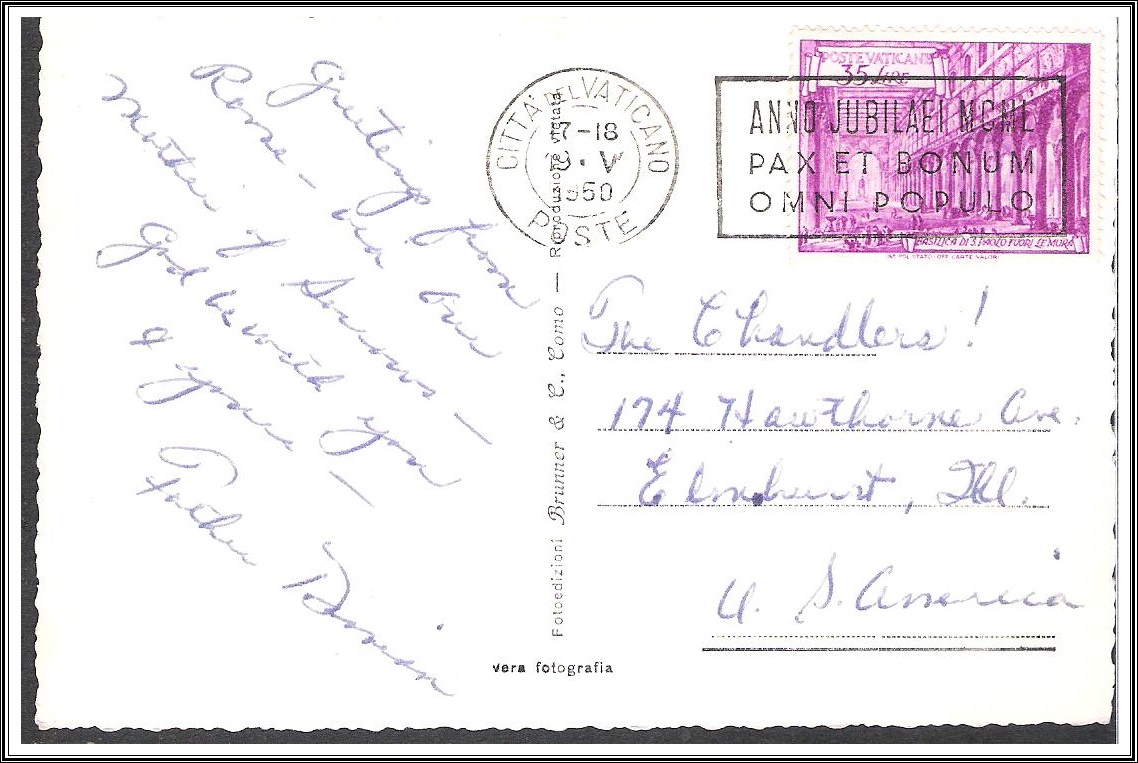 Greetings from
Rome – via our
Mother of Sorrows –
God be with you
& yours –
Father Damian
CITTÀ DEL VATICANO
17-18
V
1950
POSTE
POSTE VATICANE
35 LIRE
ANNO JUBILAEI MCML
PAX ET BONUM
OMNI POPULO
BASILICA DI S. PAOLO FUORI LE MURA
IST. POL. STATO - OFF. CARTE VALORI
The Chandlers!
174 Hawthorne Ave.
Elmhurst, Ill.
U. S. America
Fotoedizioni Brunner & C., Como — Riproduzione vietata
vera fotografia